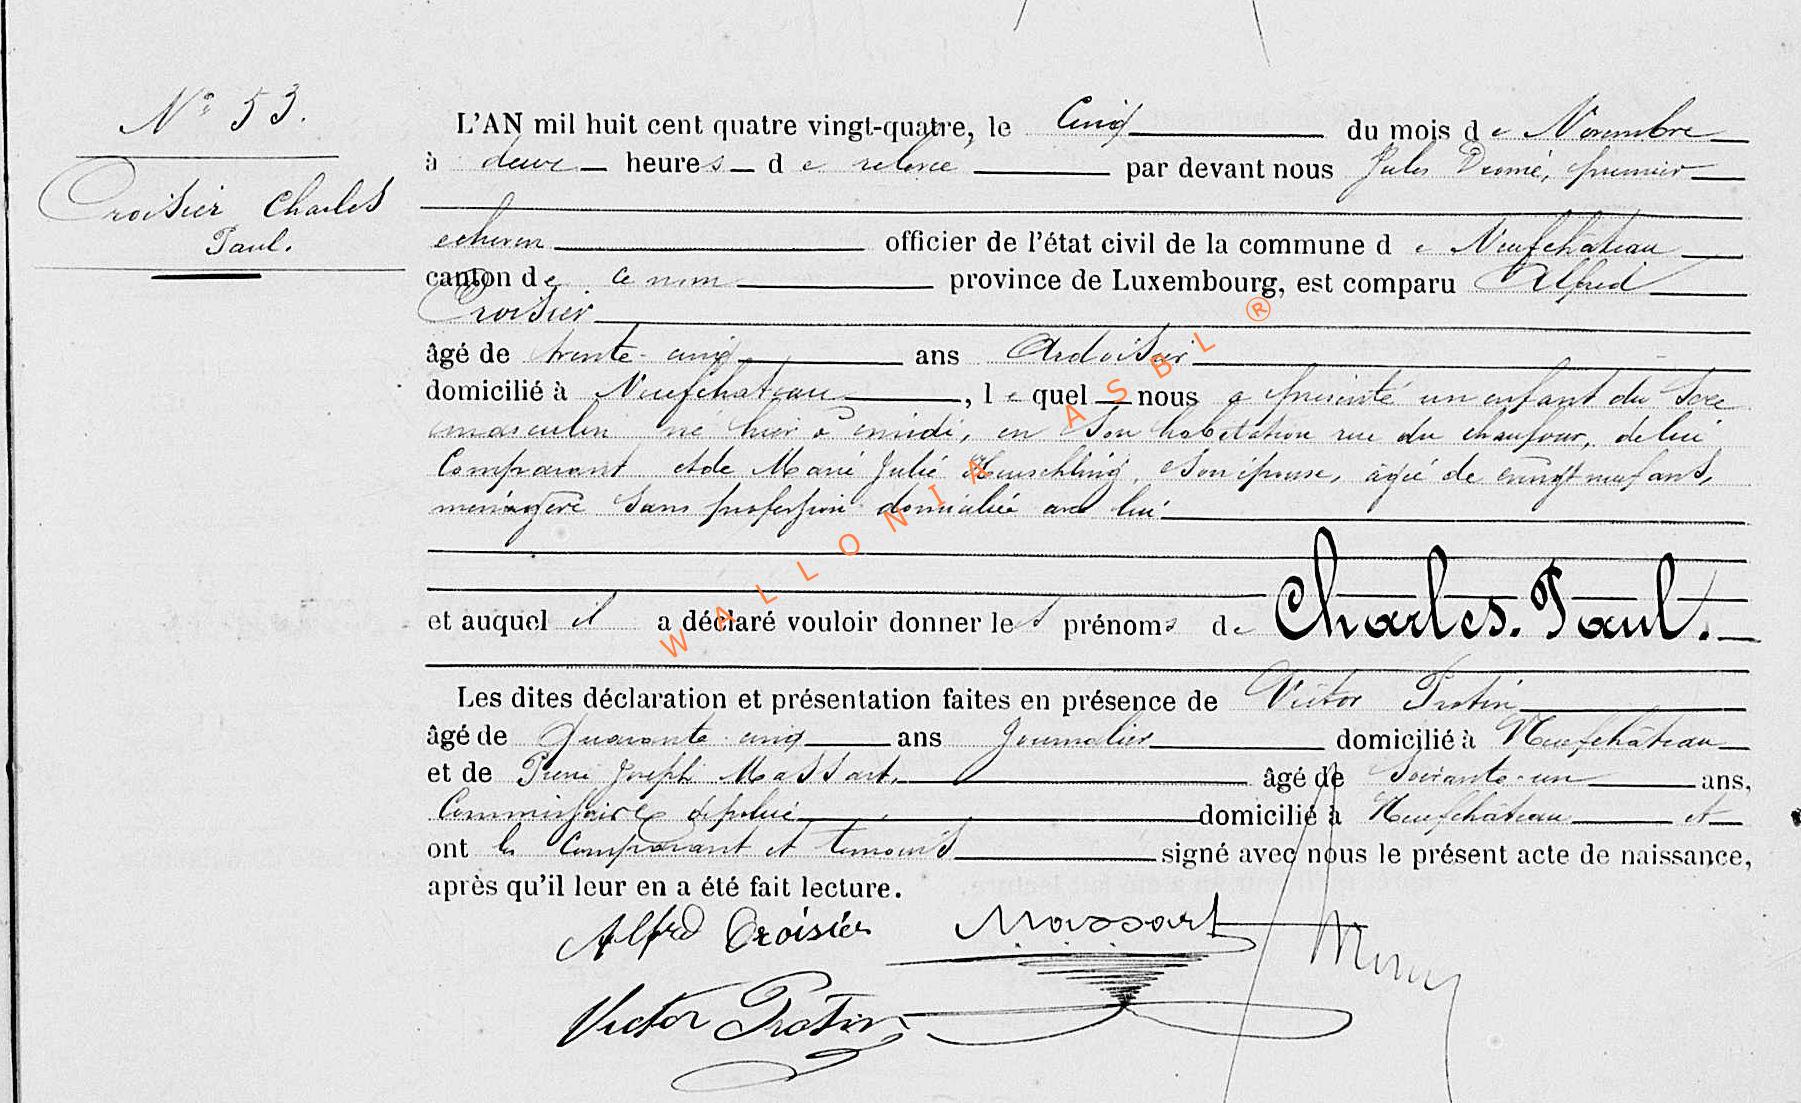 N° 53.
Croisier Charles
Paul.
L'AN mil huit cent quatre vingt-quatre, le Cinq du mois de Novembre
à deux heures de relevée par devant nous Jules Domé, premier
echevin officier de l'état civil de la commune de Neufchâteau
canton de ce nom province de Luxembourg, est comparu Alfred
Croisier
âgé de trente-cinq ans Ardoisier
domicilié à Neufchateau, lequel nous a présenté un enfant du sexe
masculin né hier à midi, en son habitation rue du chaufour, de lui
Comparant et de Marie Julie Heuschling, son épouse, agée de vingt neuf ans,
ménagère sans profession domiciliée avec lui
et auquel il a déclaré vouloir donner les prénoms de Charles. Paul.
Les dites déclaration et présentation faites en présence de Victor Protin
âgé de Quarante cinq ans Journalier domicilié à Neufchâteau
et de Pierre Joseph Massart, âgé de Soixante-un ans,
Commissaire de police domicilié à Neufchâteau et
ont les Comparant et témoins signé avec nous le présent acte de naissance,
après qu'il leur en a été fait lecture.
Alfred Croisier Massart
Victor Protin
WALLONIA ASBL ®